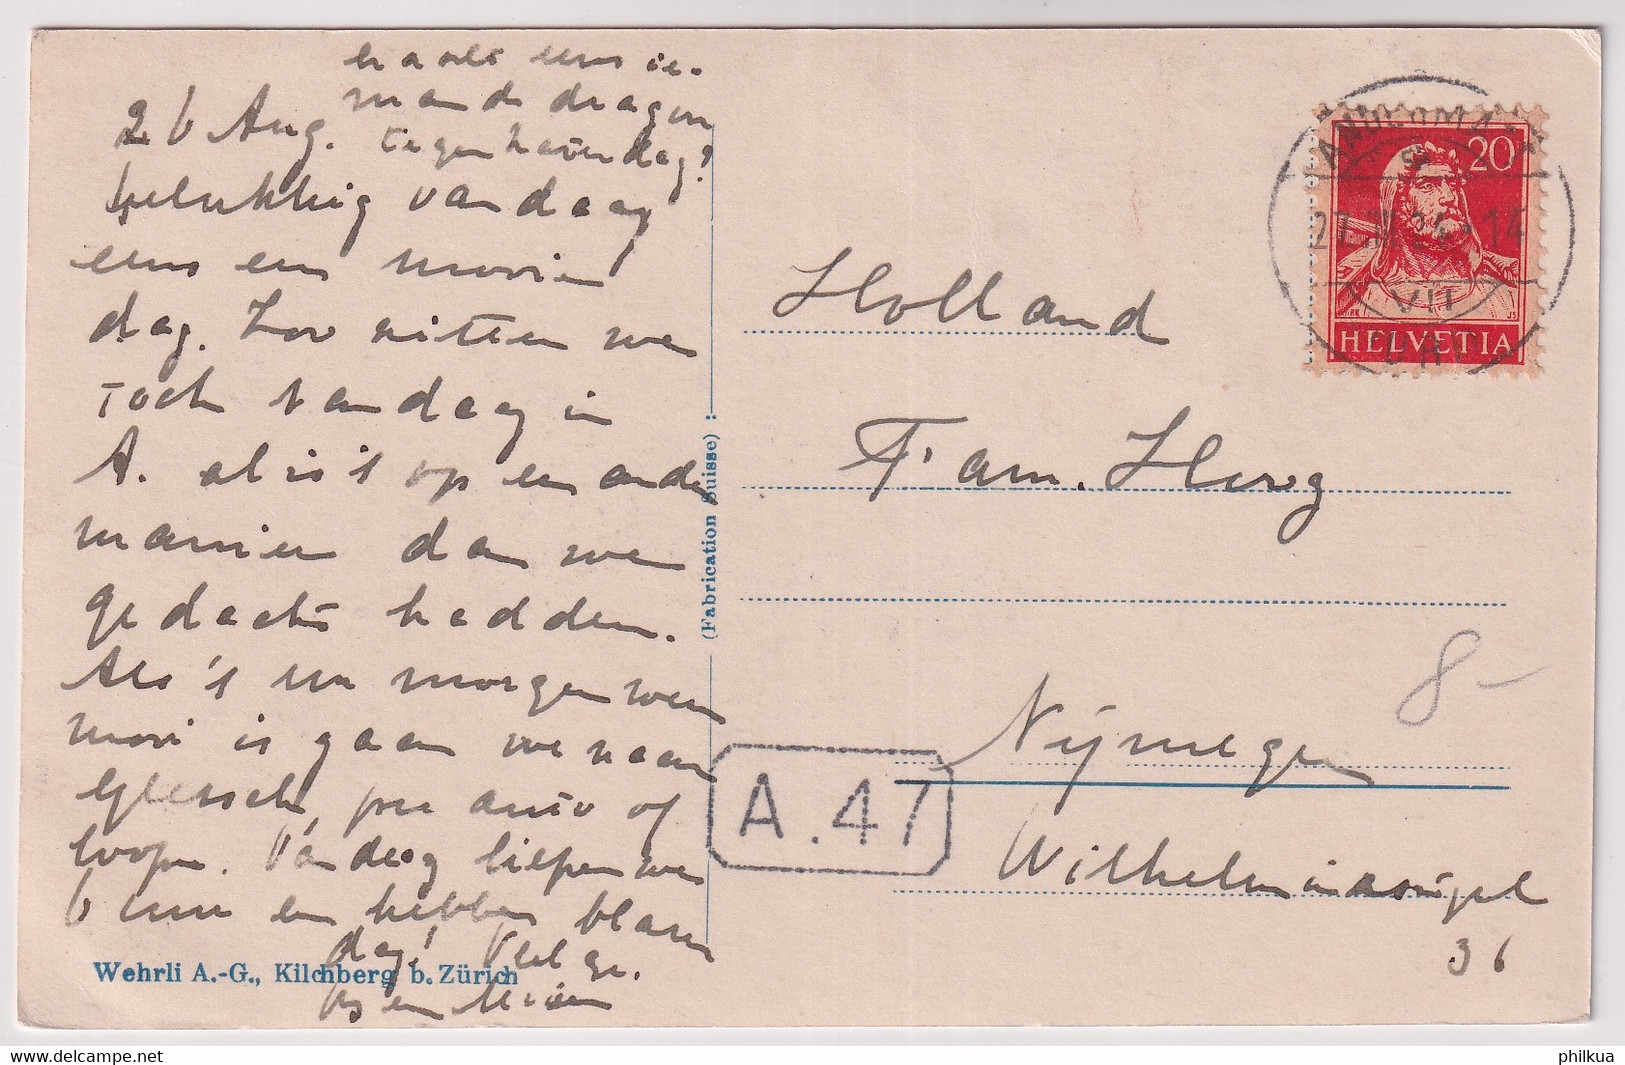 26 Aug.
Gelukkig vandaag
eens een mooie
dag. Zoo zitten we
toch vandaag in
A. al is 't op een andere
manier dan we
gedacht hadden.
Als 't nu morgen weer
mooi is gaan we naar
Gletsch, per auto of
loopen. Vandaag liepen we
6 uur en hebben blaren
dag! Veel gr.
en Mien
eens ie-
mand dragen
tegen havendag!
(Fabrication Suisse)
Wehrli A.-G., Kilchberg b. Zürich
HELVETIA
20
27.VIII.24. 14
VII
A.47
Holland
Fam. Herog
Nijmegen
Wilhelminasingel
36
8-
philkua